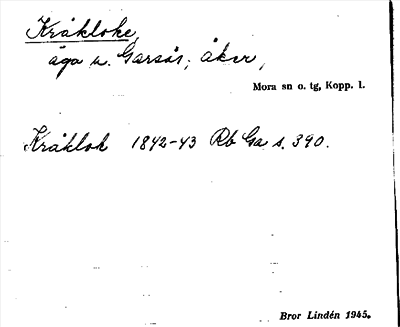 Kråkloke,
äga u. Garsås; åker,
Mora sn o. tg, Kopp. l.
Kråklok 1842-43 Rb Ga s. 390.
Bror Lindén 1945.